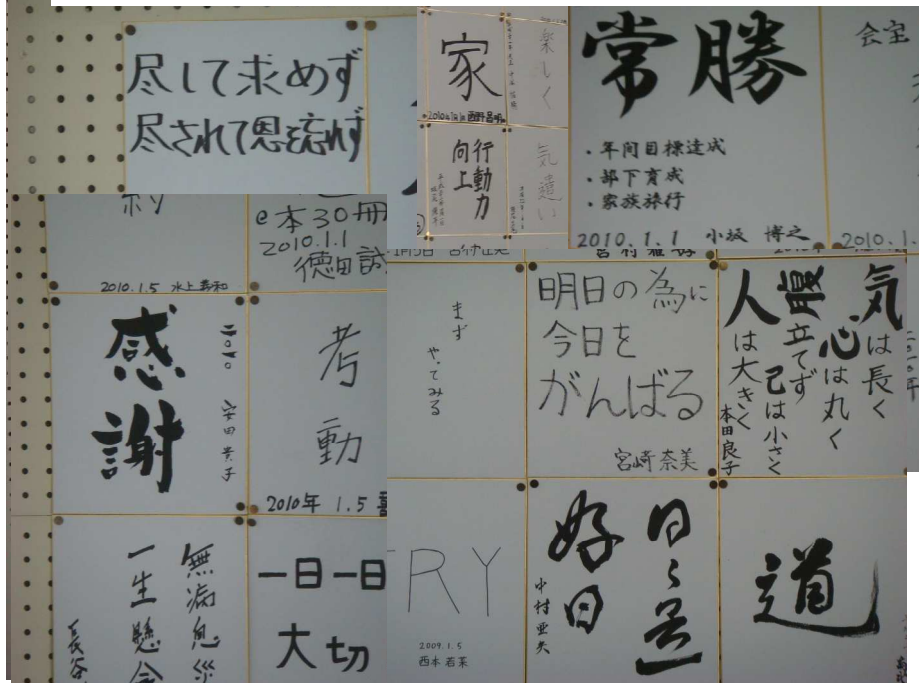 尽して求めず
尽されて恩を忘れず
家
楽しく
行動力
向上
気遣い
常勝
・年間目標達成
・部下育成
・家族旅行
2010.1.1 小坂 博之
会宝
2010.1.
e本30冊
2010.1.1
徳田
2010.1.5 水上寿和
感謝
安田 貴子
考動
2010年 1.5
まず
やってみる
明日の為に
今日を
がんばる
宮崎奈美
気は長く
心は丸く
腹立てず
己は小さく
人は大きく
本田良子
無病息災
一生懸命
長谷
一日一日
大切
RY
2009.1.5
西本若菜
日々是
好日
中村亜矢
道